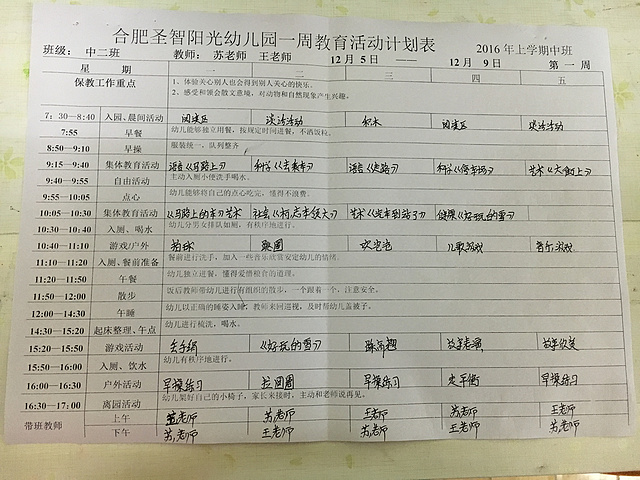 合肥圣智阳光幼儿园一周教育活动计划表
班级： 中二班 教师： 苏老师 王老师 12月5日 —— 12月9日 2016年上学期中班
星 期 二 三 四 第一周 五
保教工作重点 1、体验关心别人也会得到别人关心的快乐。
2、感受和领会散文意境，对动物和自然现象产生兴趣。
7：30—8:40 入园、晨间活动 阅读区 谈话活动 积木 阅读区 谈话活动
7:55 早餐 幼儿能够独立用餐，按规定时间进餐，不洒饭粒。
8:50—9:10 早操 服装统一，队列整齐
9:15—9:40 集体教育活动 语言《马路上》 科学《去乘车》 语言 科学《停车场》 艺术
9:40—9:55 自由活动 主动入厕小便洗手喝水。
9:55—10:05 点心 幼儿能够将自己的点心吃完，懂得不浪费。
10:05—10:30 集体教育活动 《马路上的车》艺术 社会 艺术《汽车到站了》 健康《好玩的雪》
10:30—10:40 入厕、喝水 幼儿分男女排队如厕，有秩序地进行。
10:40—11:10 游戏/户外 拍球 儿歌游戏 音乐游戏
11:10—11:20 入厕、餐前准备 餐前进行洗手，加入一些音乐欣赏安定幼儿的情绪。
11:20—11:50 午餐 幼儿独立进餐，懂得爱惜粮食的道理。
11:50—12:00 散步 饭后教师带幼儿进行有组织的散步，一个跟着一个，注意安全。
12:00—14:30 午睡 幼儿以正确的睡姿入睡，教师来回巡视，及时帮幼儿盖被子。
14:30—15:20 起床整理、午点 幼儿进行梳洗，喝水。
15:20—15:50 游戏活动 丢手绢 《好玩的雪》 故事表演 故事欣赏
15:50—16:00 入厕、饮水 幼儿有秩序地进行。
16:00—16:30 户外活动 早操练习 拉圆圈 早操练习 走平衡 早操练习
16:30—17:00 离园活动 幼儿架好自己的小椅子，家长来接时，主动和老师说再见。
带班教师 上午 老师 苏老师 王老师 苏老师 王老师
下午 苏老师 王老师 苏老师 王老师 苏老师